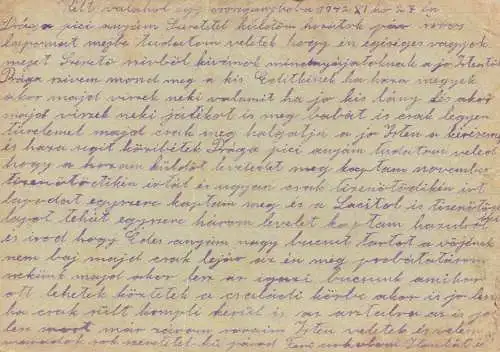 Kelt valahol egy oroszországba 1942 XI hó 27 én
Drága pici anyám Szeretetel küldöm hozzátok pár soros
lapomat mejbe tudatom veletek hogy én egéséges vagyok
mejet Szerető szivből kivánok mindnyájatoknak a jo Istentöl
Drága szivem mond meg a kis Editkének ha haza megyek
akor majd viszek neki valamit ha jo kis lány lesz akor
majd viszek neki játékot is meg babát is csak legyen
türelemel majd csak meg halgatja a jo Isten a kérésem
és haza segit közibétek Drága pici anyám tudatom veled
hogy a hozzám küldöt leveledet meg kaptam november
tizenötödikén irtál és ugyan csak tizenötödikén irt
lapodat egyszere kaptam meg és a Lacitol is tizenötödi
lapot tehát egyszere három levelet kaptam hazulrol
és irod hogy Édes anyám nagy bucsut tartot a
nem baj majd csak lejár az én meg probáltatásom
nekünk majd akor lesz az igazi bucsunk amikor
ott lehetek köztetek a családi körbe akor is jo lesz
ha csak sült krumpli kerül is az asztalra az is jo
lesz most már zárom soraim Isten veletek és velem
maradok sok szeretetel hű párod